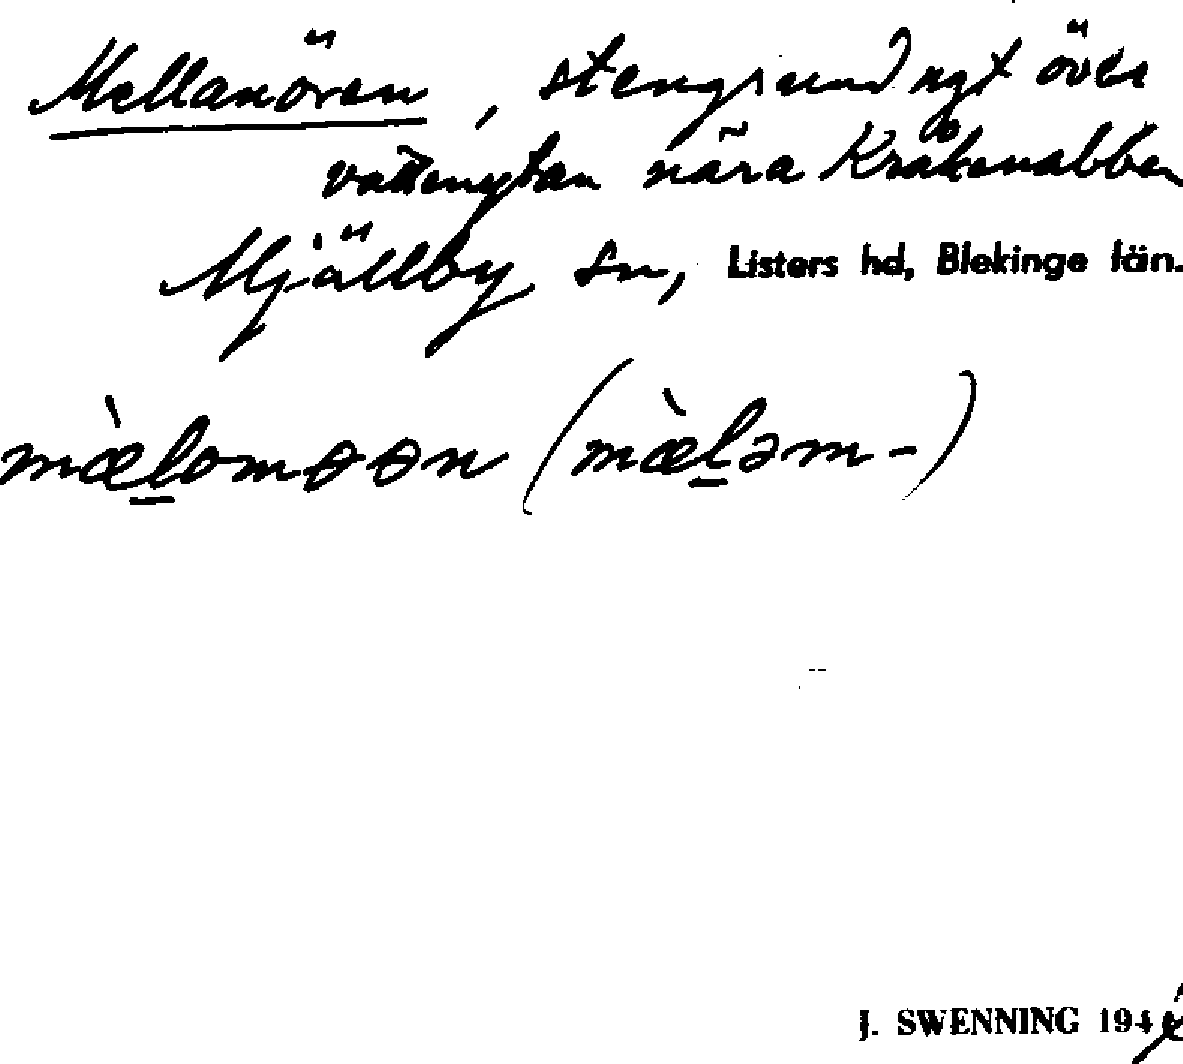 Mellanören, stengrund nyt över
vattenytan nära Kråkenabben
Mjällby sn, Listers hd, Blekinge län.
mæ̀l̠omøøn (mæ̀l̠əm-)
J. SWENNING 194